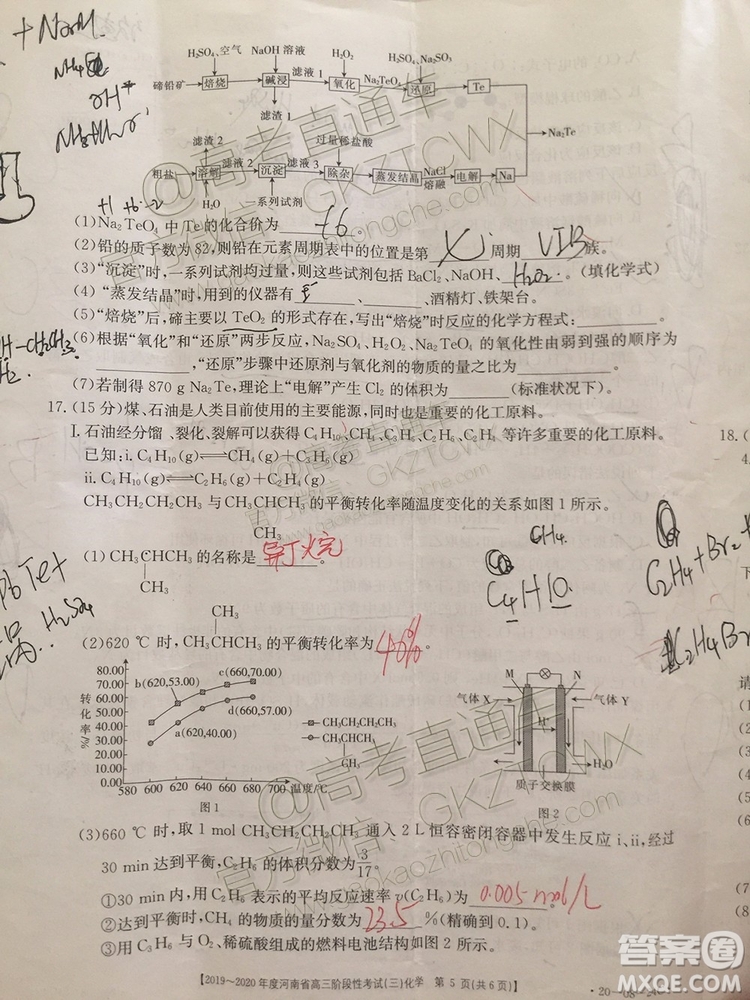 +Na2H.
H₂SO₄、空气 NaOH 溶液 H₂O₂ H₂SO₄、Na₂SO₃
碲铅矿 焙烧 碱浸 滤液 1 氧化 Na₂TeO₄ 还原 Te
滤渣 1
Na₂Te
滤渣 2 过量稀盐酸
粗盐 溶解 滤液 2 沉淀 滤液 3 除杂 蒸发结晶 NaCl 熔融 电解 Na
H₂O 一系列试剂
+1 +6 -2
(1)Na₂TeO₄ 中 Te 的化合价为 +6 。
(2)铅的质子数为 82,则铅在元素周期表中的位置是第 周期 VIB 族。
(3)“沉淀”时,一系列试剂均过量,则这些试剂包括 BaCl₂、NaOH、 H₂O₂ 。(填化学式)
(4)“蒸发结晶”时,用到的仪器有 、酒精灯、铁架台。
(5)“焙烧”后,碲主要以 TeO₂ 的形式存在,写出“焙烧”时反应的化学方程式:
(6)根据“氧化”和“还原”两步反应,Na₂SO₄、H₂O₂、Na₂TeO₄ 的氧化性由弱到强的顺序为
,“还原”步骤中还原剂与氧化剂的物质的量之比为 。
(7)若制得 870 g Na₂Te,理论上“电解”产生 Cl₂ 的体积为 (标准状况下)。
17.(15 分)煤、石油是人类目前使用的主要能源,同时也是重要的化工原料。
Ⅰ.石油经分馏、裂化、裂解可以获得 C₄H₁₀、CH₄、C₃H₆、C₂H₆、C₂H₄ 等许多重要的化工原料。
已知:ⅰ.C₄H₁₀(g)⇌CH₄(g)+C₃H₆(g)
ⅱ.C₄H₁₀(g)⇌C₂H₆(g)+C₂H₄(g)
CH₃CH₂CH₂CH₃ 与 CH₃CHCH₃ 的平衡转化率随温度变化的关系如图 1 所示。
CH₃
(1)CH₃CHCH₃ 的名称是 异丁烷 。
CH₃
C₄H10
CH₃
(2)620 ℃ 时,CH₃CHCH₃ 的平衡转化率为 40% 。
转化率/%
80.00
70.00
60.00
50.00
40.00
30.00
20.00
10.00
0.00
b(620,53.00)
c(660,70.00)
d(660,57.00)
a(620,40.00)
CH₃CH₂CH₂CH₃
CH₃CHCH₃
CH₃
580 600 620 640 660 680 700 温度/℃
图 1
M N
气体 X 气体 Y
H⁺
H₂O
质子交换膜
图 2
(3)660 ℃时,取 1 mol CH₃CH₂CH₂CH₃ 通入 2 L 恒容密闭容器中发生反应 ⅰ、ⅱ,经过
30 min 达到平衡,C₂H₆ 的体积分数为 3/17。
①30 min 内,用 C₂H₆ 表示的平均反应速率 v(C₂H₆)为 0.005 mol/L 。
②达到平衡时,CH₄ 的物质的量分数为 23.5 %(精确到 0.1)。
③用 C₃H₆ 与 O₂、稀硫酸组成的燃料电池结构如图 2:
【2019～2020 年度河南省高三阶段性考试(三)化学 第 5 页(共 6 页)】
18.(
C₂H₄+Br₂
@高考直通车
GKZTCWX
官方微信
gaokaozhitongche.com
答案圈
MXQE.COM